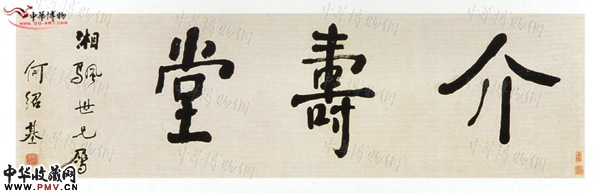 介壽堂
湘颿世兄屬
何紹基
中華博物
www.gg-art.com
中华收藏网
www.PMV.cn